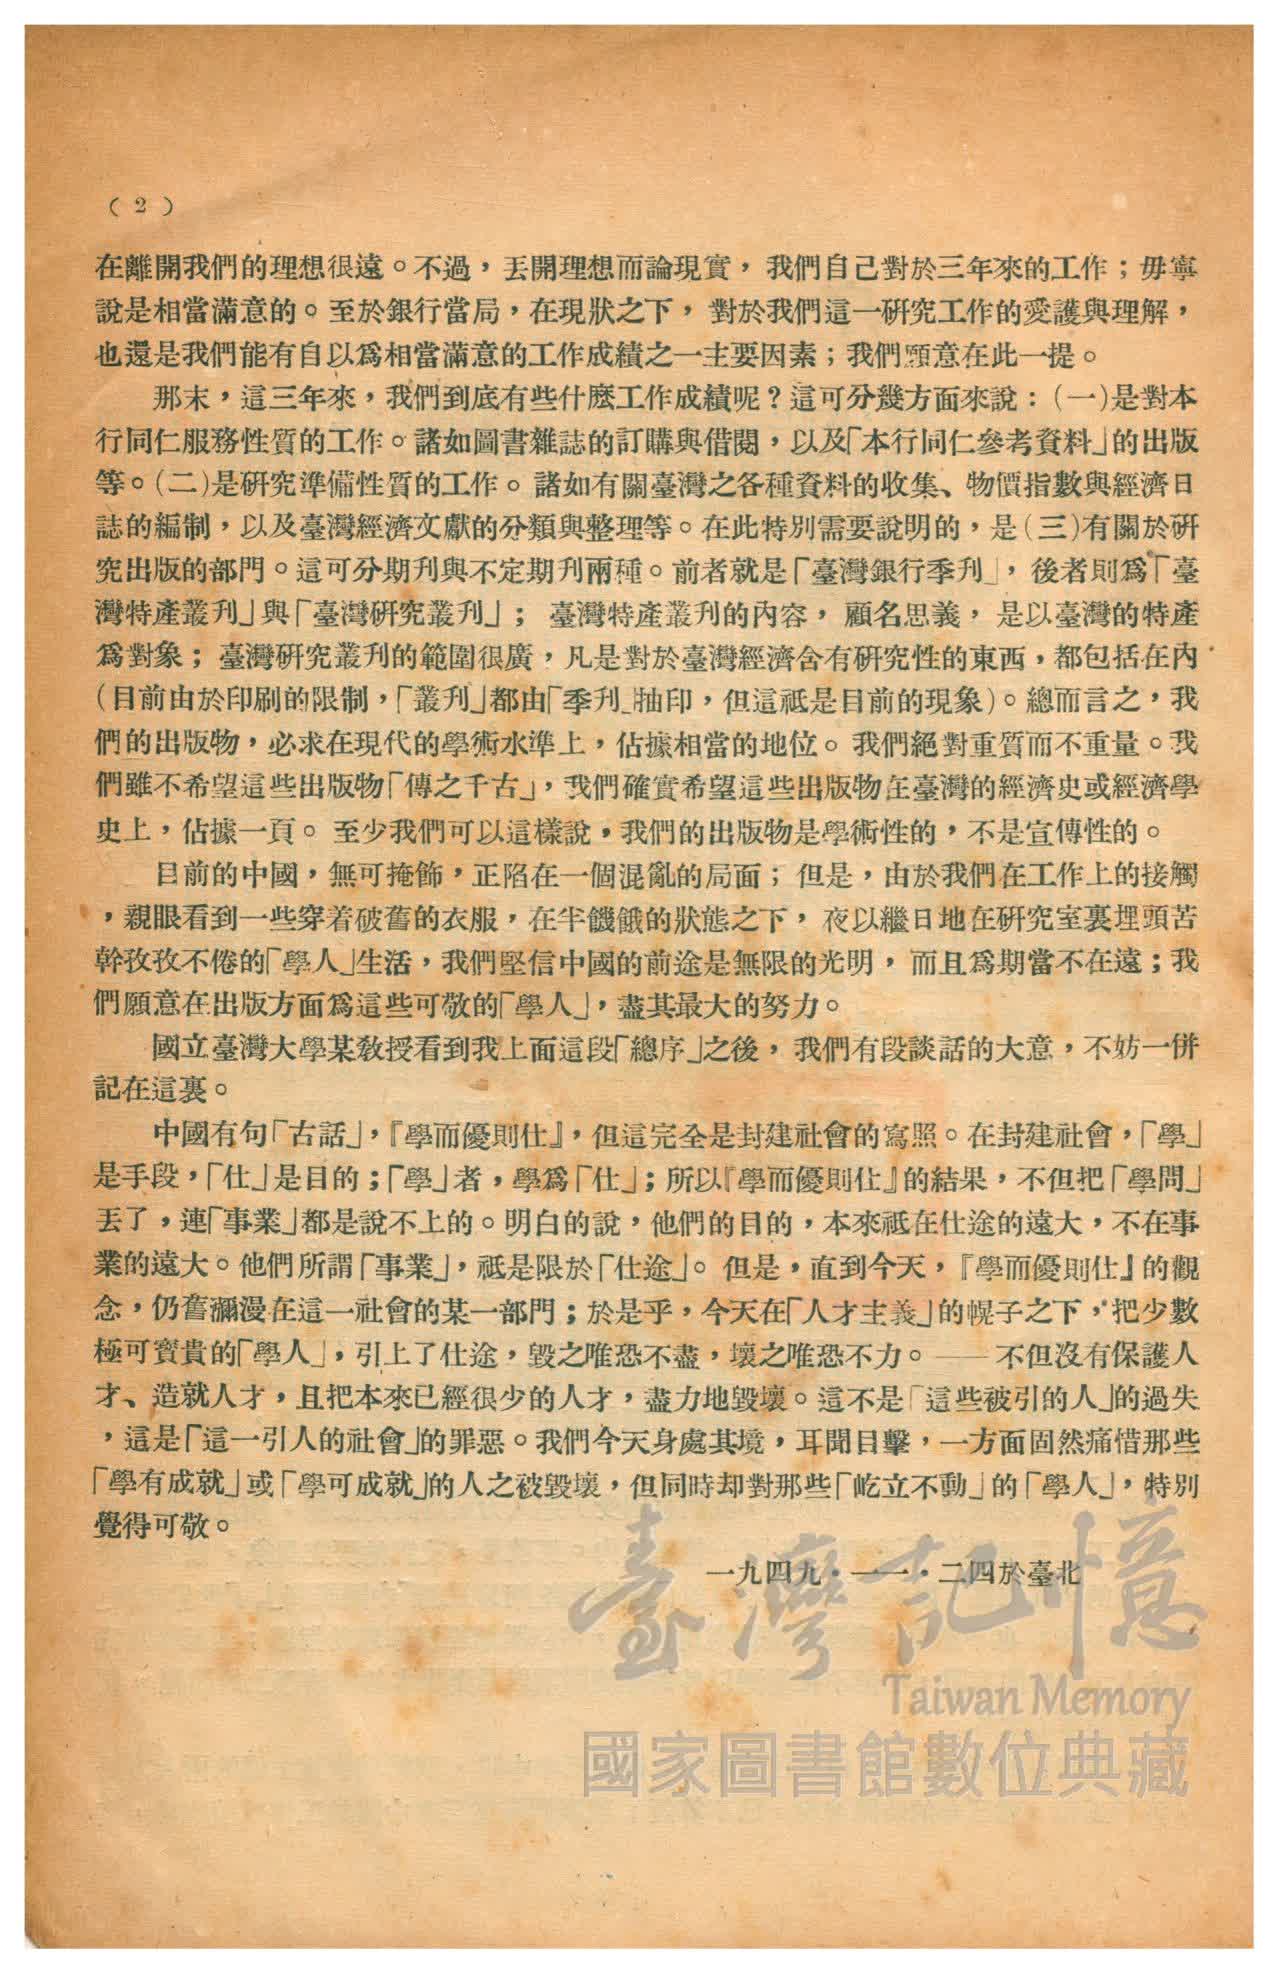 ( 2 )
在離開我們的理想很遠。不過，丟開理想而論現實，我們自己對於三年來的工作；毋寧
說是相當滿意的。至於銀行當局，在現狀之下，對於我們這一研究工作的愛護與理解，
也還是我們能有自以爲相當滿意的工作成績之一主要因素；我們願意在此一提。
那末，這三年來，我們到底有些什麼工作成績呢？這可分幾方面來說：(一)是對本
行同仁服務性質的工作。諸如圖書雜誌的訂購與借閱，以及「本行同仁參考資料」的出版
等。(二)是研究準備性質的工作。諸如有關臺灣之各種資料的收集、物價指數與經濟日
誌的編制，以及臺灣經濟文獻的分類與整理等。在此特別需要說明的，是(三)有關於研
究出版的部門。這可分期刊與不定期刊兩種。前者就是「臺灣銀行季刊」，後者則爲「臺
灣特產叢刊」與「臺灣研究叢刊」；臺灣特產叢刊的內容，顧名思義，是以臺灣的特產
爲對象；臺灣研究叢刊的範圍很廣，凡是對於臺灣經濟含有研究性的東西，都包括在內
(目前由於印刷的限制，「叢刊」都由「季刊」抽印，但這祇是目前的現象)。總而言之，我
們的出版物，必求在現代的學術水準上，佔據相當的地位。我們絕對重質而不重量。我
們雖不希望這些出版物「傳之千古」，我們確實希望這些出版物在臺灣的經濟史或經濟學
史上，佔據一頁。至少我們可以這樣說，我們的出版物是學術性的，不是宣傳性的。
目前的中國，無可掩飾，正陷在一個混亂的局面；但是，由於我們在工作上的接觸
，親眼看到一些穿着破舊的衣服，在半饑餓的狀態之下，夜以繼日地在研究室裏埋頭苦
幹孜孜不倦的「學人」生活，我們堅信中國的前途是無限的光明，而且爲期當不在遠；我
們願意在出版方面爲這些可敬的「學人」，盡其最大的努力。
國立臺灣大學某教授看到我上面這段「總序」之後，我們有段談話的大意，不妨一併
記在這裏。
中國有句「古話」，『學而優則仕』，但這完全是封建社會的寫照。在封建社會，「學」
是手段，「仕」是目的；「學」者，學爲「仕」；所以『學而優則仕』的結果，不但把「學問」
丟了，連「事業」都是說不上的。明白的說，他們的目的，本來祇在仕途的遠大，不在事
業的遠大。他們所謂「事業」，祇是限於「仕途」。但是，直到今天，『學而優則仕』的觀
念，仍舊瀰漫在這一社會的某一部門；於是乎，今天在「人才主義」的幌子之下，把少數
極可寶貴的「學人」，引上了仕途，毀之唯恐不盡，壞之唯恐不力。——不但沒有保護人
才、造就人才，且把本來已經很少的人才，盡力地毀壞。這不是「這些被引的人」的過失
，這是「這一引人的社會」的罪惡。我們今天身處其境，耳聞目擊，一方面固然痛惜那些
「學有成就」或「學可成就」的人之被毀壞，但同時却對那些「屹立不動」的「學人」，特別
覺得可敬。
一九四九·一一·二四於臺北
臺灣記憶
Taiwan Memory
國家圖書館數位典藏